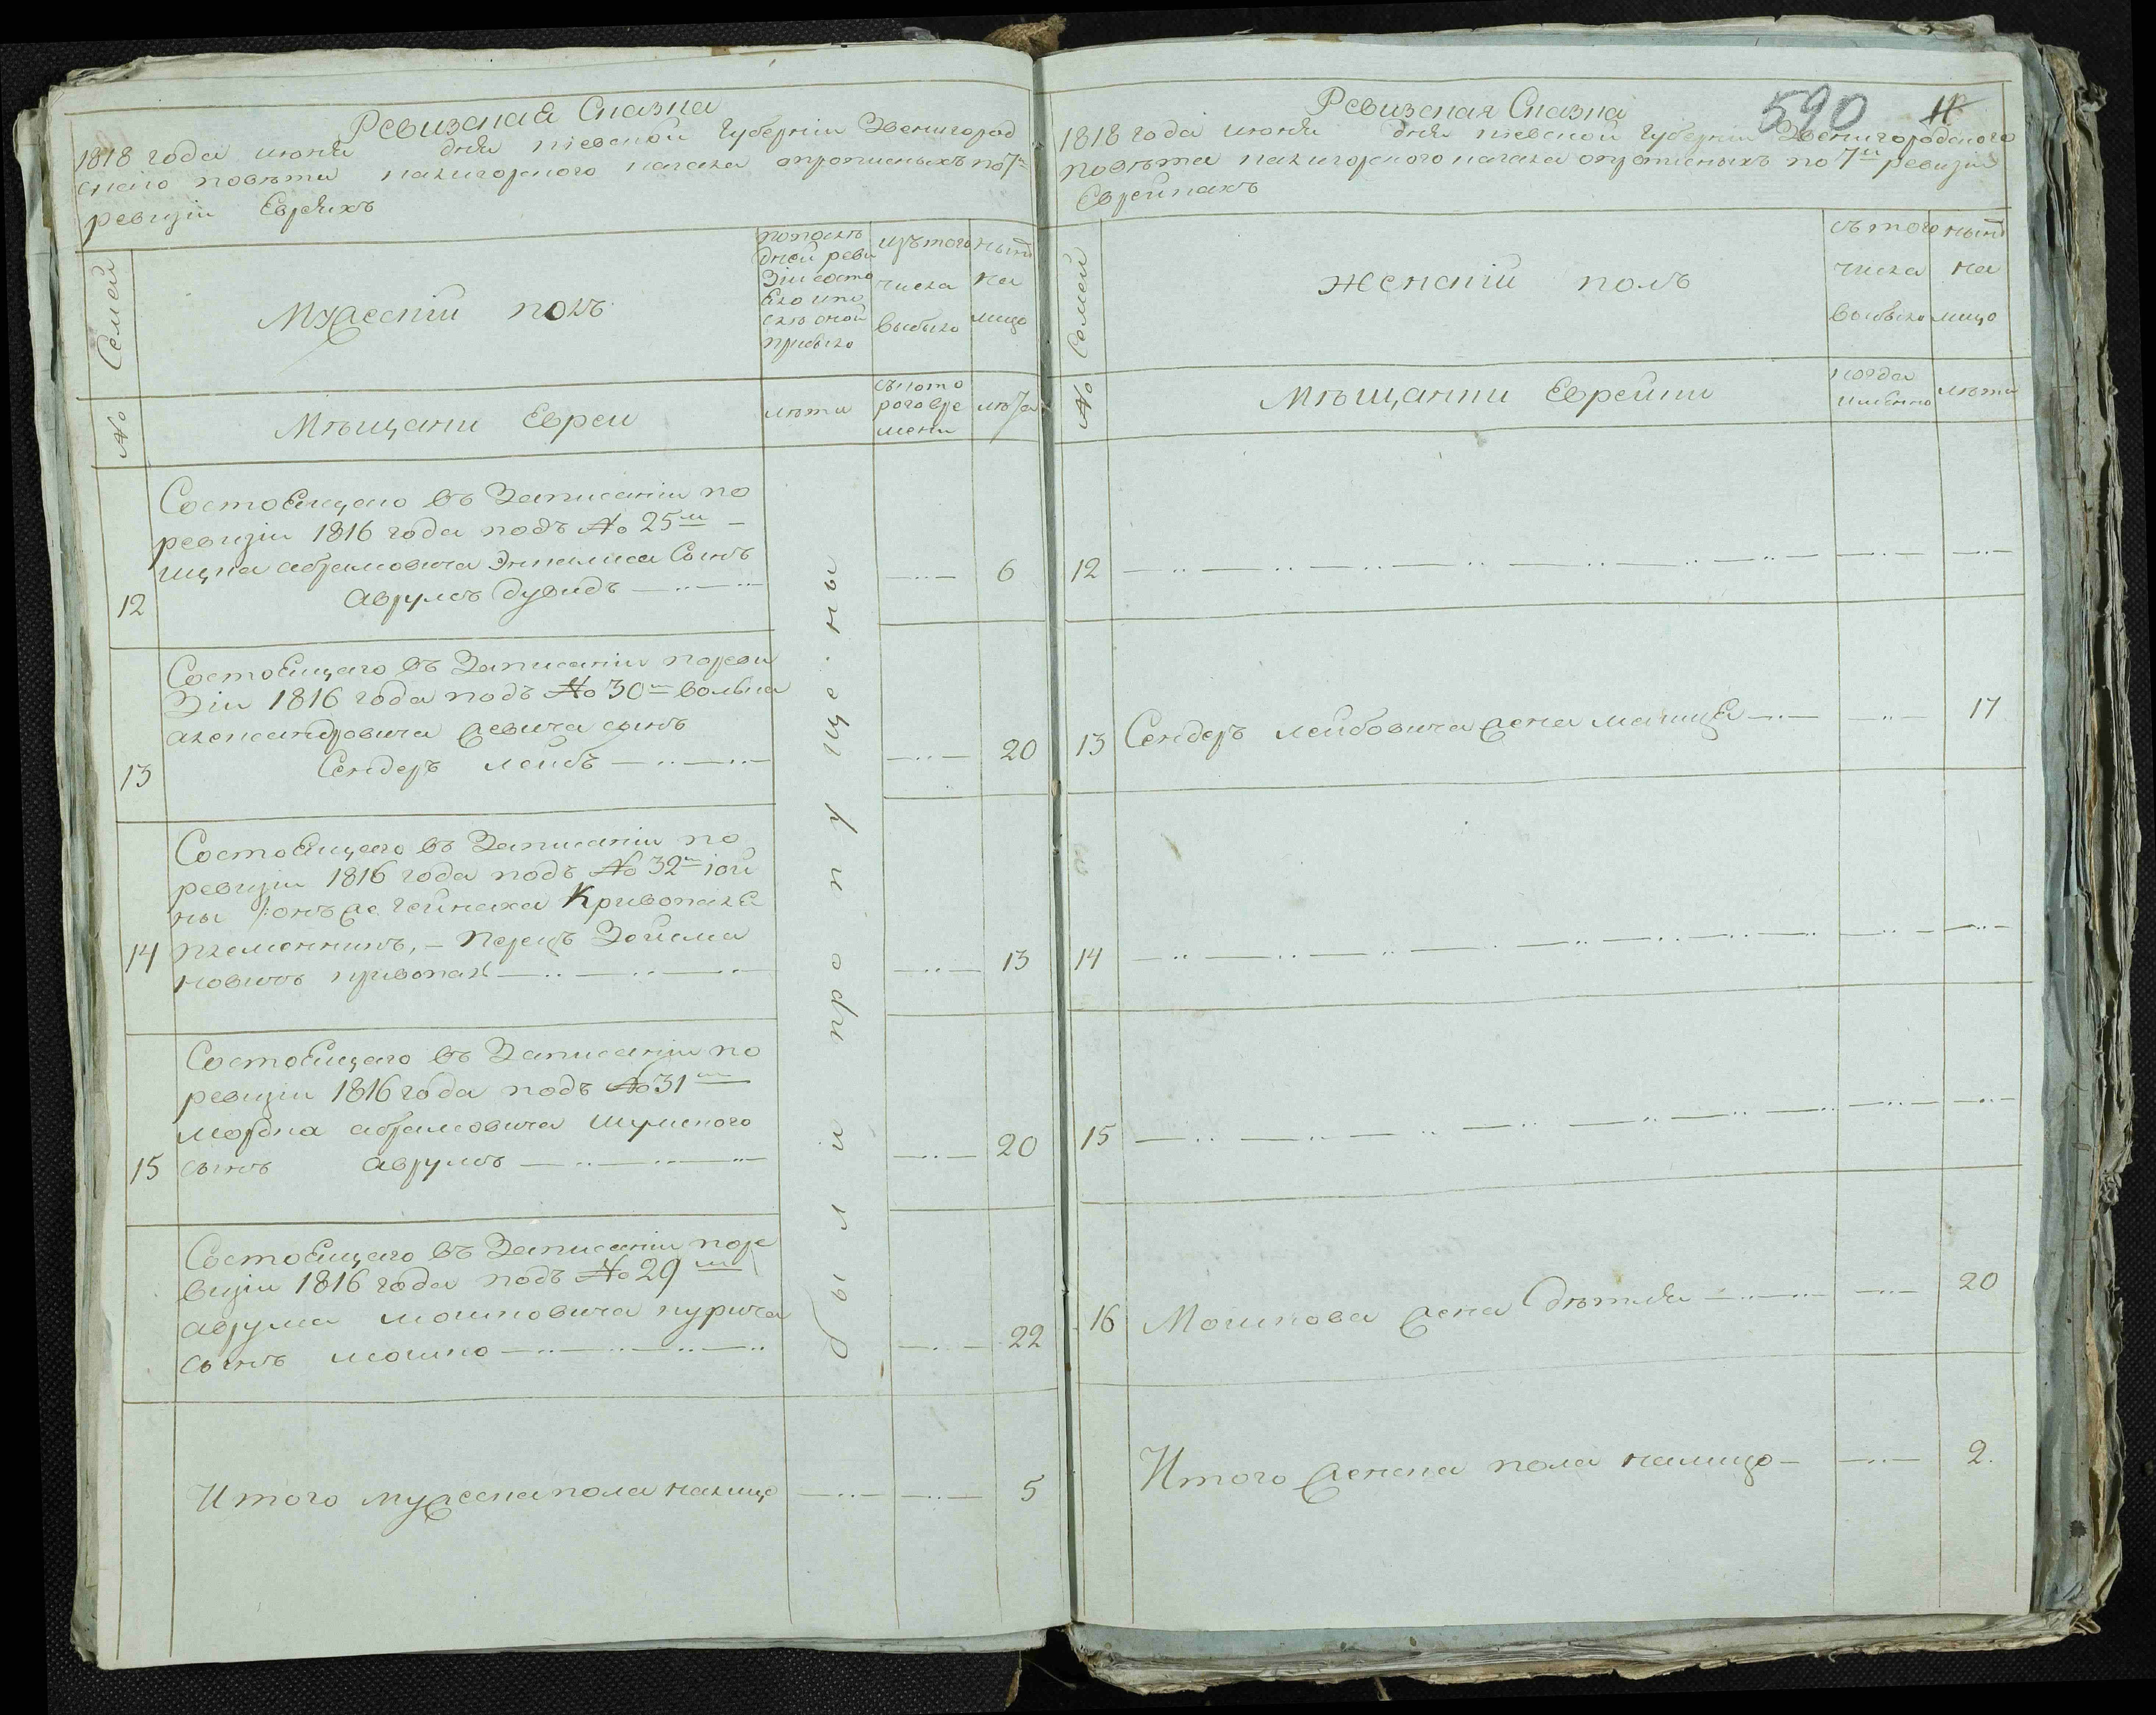 Ревизская Сказка
1818 года июня дня киевской Губернии Звенигород
скаго повѣта кагала опрописныхъ по 7й
ревизіи Евреяхъ
№ Семей
Мужескій полъ
попослѣ
дней реви
зіи состо
яло и по
слѣ оной
прибыло
изъ того
числа
выбыло
нынѣ
на
лицо
Мѣщани Евреи
лѣта
съ кото
рого вре
мени
лѣта
12
Состоящаго въ Записаніи по
ревизіи 1816 года подъ № 25м –
ицка абрамовича Сынъ
аврумъ дувидъ
6
13
Состоящаго въ Записаніи пореви
зіи 1816 года подъ № 30м волька
александровича сынъ
Сендеръ лейбъ
20
14
Состоящаго въ Записаніи по
ревизіи 1816 года подъ № 32м іой
ны онъ же гейнаха Кривопаля
племенникъ, – перецъ Зойлма
новичъ кривопал
13
15
Состоящаго въ Записаніи по
ревизіи 1816 года подъ № 31м
мордка абрамовича шумского
сынъ аврумъ
20
Состоящаго въ Записаніи поре
визіи 1816 года подъ № 29м
аврума мошковича курича
сынъ мошко
22
были пропущены
Итого мужеска пола налицо
5
Ревизская Сказка
590
11
1818 года июня дня киевской Губернии Звенигородского
повѣта кагала опрописныхъ по 7й ревизіи
Еврейкахъ
№ Семей
Женскій полъ
съ того
числа
выбыло
нынѣ
на
лицо
Мѣщанки Еврейки
когда
именно
лѣта
12
13
Сендеръ лейбовича жена
17
14
15
16
Мошкова жена
20
Итого женска пола налицо –
2.